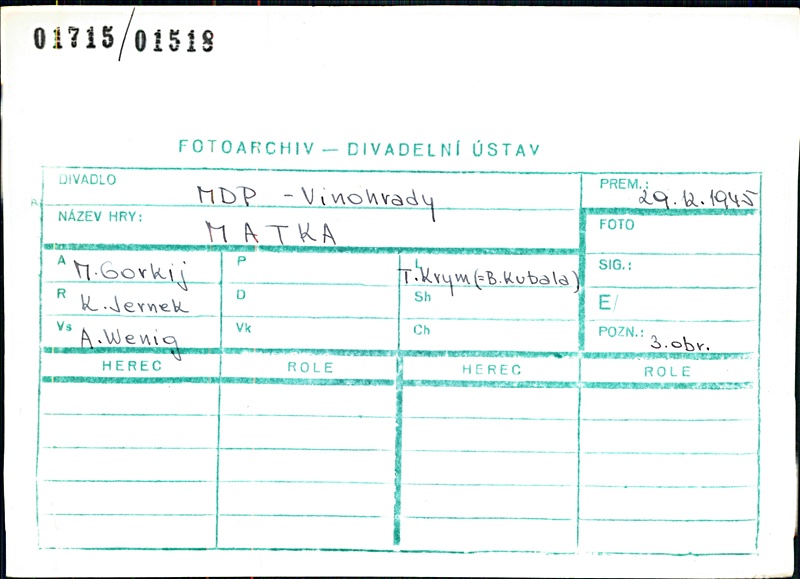 01715/01518
FOTOARCHIV — DIVADELNÍ ÚSTAV
DIVADLO MDP - Vinohrady
PREM.: 29.12.1945
NÁZEV HRY: MATKA
FOTO
A M.Gorkij
P
L T.Krym (=B.Kubala)
SIG.:
R K.Jernek
D
Sh
E/
Vs A.Wenig
Vk
Ch
POZN.: 3.obr.
HEREC ROLE HEREC ROLE